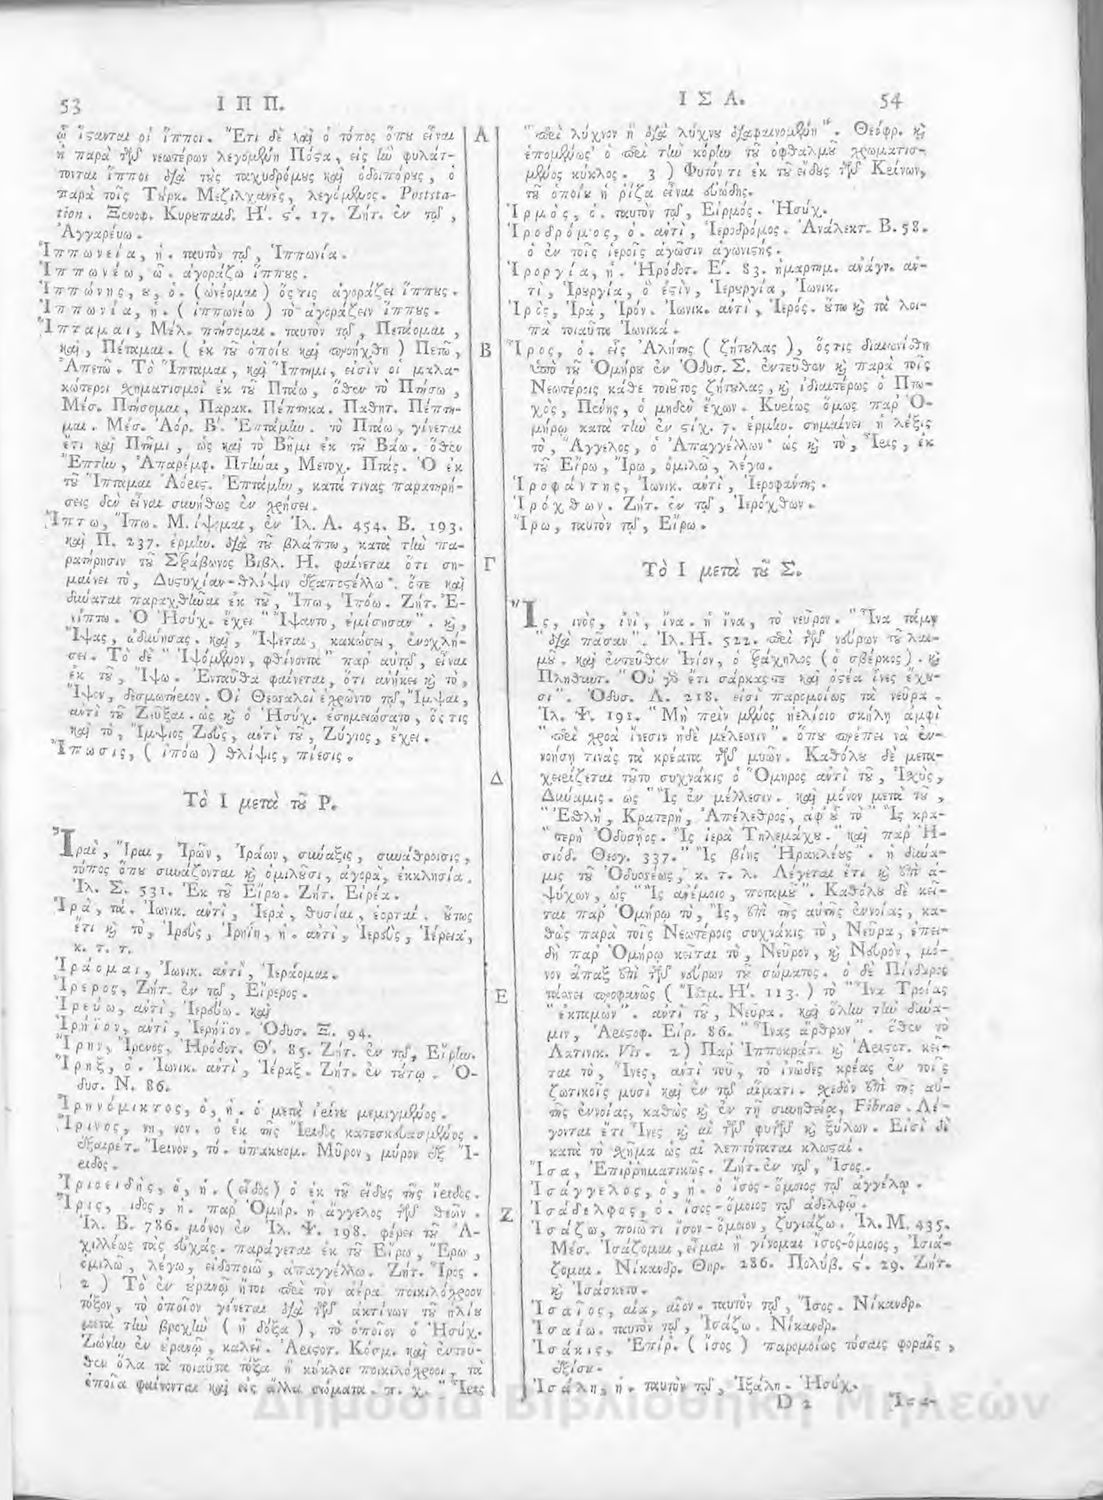 53 Ι Π Π.
ᾧ ἵστανται οἱ ἵπποι. Ἔτι δὲ καὶ ὁ τόπος ὅπου εἶναι
ἡ παρὰ τῶν νεωτέρων λεγομένη Πόστα, εἰς ἣν φυλάτ-
τονται ἵπποι διὰ τοὺς ταχυδρόμους καὶ ὁδοιπόρους, ὁ
παρὰ τοῖς Τούρκ. Μεζιλχανὲς, λεγόμενος. Poststa-
tion. Ξενοφ. Κυρουπαιδ. Η'. ς'. 17. Ζήτ. ἐν τῷ,
Ἀγγαρεύω.
Ἱππωνεία, ἡ. ταυτὸν τῷ, Ἱππωνία.
Ἱππωνέω, ῶ. ἀγοράζω ἵππους.
Ἱππώνης, ου, ὁ. (ὠνέομαι) ὅςτις ἀγοράζει ἵππους.
Ἱππωνία, ἡ. (ἱππωνέω) τὸ ἀγοράζειν ἵππους.
Ἵπταμαι, Μέλ. πτήσομαι. ταυτὸν τῷ, Πετάομαι,
καὶ, Πέταμαι. (ἐκ τοῦ ὁποίου καὶ προήχθη) Πετῶ,
Ἀπετῶ. Τὸ Ἵπταμαι, καὶ Ἵπτημι, εἰσὶν οἱ μαλα-
κώτεροι σχηματισμοὶ ἐκ τοῦ Πτάω, ὅθεν τὸ Πτήσω,
Μέσ. Πτήσομαι, Παρακ. Πέπτηκα. Παθητ. Πέπτη-
μαι. Μέσ. Ἀόρ. Β'. Ἐπτάμην. τὸ Πτάω, γίνεται
ἔτι καὶ Πτῆμι, ὡς καὶ τὸ Βῆμι ἐκ τοῦ Βάω. ὅθεν
Ἔπτην, Ἀπαρέμφ. Πτῆναι, Μετοχ. Πτάς. Ὁ ἐκ
τοῦ Ἵπταμαι Ἀόρις. Ἐπτάμην, κατά τινας παρατηρή-
σεις δὲν εἶναι συνήθως ἐν χρήσει.
Ἵπτω, Ἵπω. Μ. ἵψομαι, ἐν Ἰλ. Α. 454. Β. 193.
καὶ Π. 237. ἑρμην. διὰ τοῦ βλάπτω, κατὰ τὴν πα-
ρατήρησιν τοῦ Στράβωνος Βιβλ. Η. φαίνεται ὅτι ση-
μαίνει τὸ, Δυςτυχίαν-θλίψιν ἐξαποςτέλλω. ὅτε καὶ
δύναται παραχθῆναι ἐκ τοῦ, Ἵπω, Ἱπόω. Ζήτ. Ἐ-
νίπτω. Ὁ Ἡσύχ. ἔχει "Ἵψαντο, ἐμίσησαν". καὶ,
Ἵψας, ὠδυνήσας. καὶ, Ἵψεται, κακώσει, ἐνοχλή-
σει. Τὸ δὲ "Ἰψόμενον, φθίνοντα" παρ' αὐτῷ, εἶναι
ἐκ τοῦ, Ἵψω. Ἐνταῦθα φαίνεται, ὅτι ἀνήκει καὶ τὸ,
Ἵψον, δεσμωτήριον. Οἱ Θεσσαλοὶ ἐχρῶντο τῷ, Ἴμψαι,
ἀντὶ τοῦ Ζεῦξαι. ὡς καὶ ὁ Ἡσύχ. ἐσημειώσατο, ὅςτις
καὶ τὸ, Ἴμψιος Ζεὺς, ἀντὶ τοῦ, Ζύγιος, ἔχει.
Ἵπωσις, (ἱπόω) θλίψις, πίεσις.
Τὸ Ι μετὰ τοῦ Ρ.
Ἶραὶ, Ἴραι, Ἰρῶν, Ἰράων, σύναξις, συνάθροισις,
τόπος ὅπου συνάζονται καὶ ὁμιλοῦσι, ἀγορὰ, ἐκκλησία.
Ἰλ. Σ. 531. Ἐκ τοῦ Εἴρω. Ζήτ. Εἰρέα.
Ἱρὰ, τά. Ἰωνικ. ἀντὶ, Ἱερὰ, θυσίαι, ἑορταί. οὕτως
ἔτι καὶ τὸ, Ἱρεὺς, Ἱρηΐη, ἡ. ἀντὶ, Ἱερεὺς, Ἱέρεια,
κ. τ. τ.
Ἱράομαι, Ἰωνικ. ἀντὶ, Ἱεράομαι.
Ἴρερος, Ζήτ. ἐν τῷ, Εἴρερος.
Ἱρεύω, ἀντὶ, Ἱερεύω. καὶ
Ἱρήϊον, ἀντὶ, Ἱερήϊον. Ὀδυσ. Ξ. 94.
Ἴρην, Ἴρενος, Ἡρόδοτ. Θ'. 85. Ζήτ. ἐν τῷ, Εἴρην.
Ἴρηξ, ὁ. Ἰωνικ. ἀντὶ, Ἱέραξ. Ζήτ. ἐν τούτῳ. Ὀ-
δυσ. Ν. 86.
Ἰρηνόμικτος, ὁ, ἡ. ὁ μετὰ ἰρίνου μεμιγμένος.
Ἴρινος, νη, νον. ὁ ἐκ τῆς Ἴριδος κατεσκευασμένος.
ἐξαιρέτ. Ἴρινον, τό. ὑπακουομ. Μύρον, μύρον ἐξ Ἴ-
ριδος.
Ἰριοειδὴς, ὁ, ἡ. (εἶδος) ὁ ἐκ τοῦ εἴδους τῆς ἴριδος.
Ἶρις, ιδος, ἡ. παρ' Ὁμήρ. ἡ ἄγγελος τῶν θεῶν.
Ἰλ. Β. 786. μόνον ἐν Ἰλ. Ψ. 198. φέρει τοῦ Ἀ-
χιλλέως τὰς εὐχάς. παράγεται ἐκ τοῦ Εἴρω, Ἔρω,
ὁμιλῶ, λέγω, εἰδοποιῶ, ἀπαγγέλλω. Ζήτ. Ἶρος.
2) Τὸ ἐν οὐρανῷ ἤτοι περὶ τὸν ἀέρα ποικιλόχροον
τόξον, τὸ ὁποῖον γίνεται διὰ τῶν ἀκτίνων τοῦ ἡλίου
μετὰ τὴν βροχὴν (ἡ δόξα), τὸ ὁποῖον ὁ Ἡσύχ.
Ζώνην ἐν οὐρανῷ, καλεῖ. Ἀριςτοτ. Κόσμ. καὶ ἐντεῦ-
θεν ὅλα τὰ τοιαῦτα τόξα ἢ κύκλοι ποικιλόχροοι, τὰ
ὁποῖα φαίνονται καὶ εἰς ἄλλα σώματα. π. χ. "Ἶρις
Α
Β
Γ
Δ
Ε
Ζ
Ι Σ Α. 54
"περὶ λύχνον ἢ διὰ λύχνου διαφαινομένη". Θεόφρ. καὶ
ἑπομένως ὁ περὶ τὴν κόρην τοῦ ὀφθαλμοῦ χρωματισ-
μένος κύκλος. 3) Φυτόν τι ἐκ τοῦ εἴδους τῶν Κρίνων,
τοῦ ὁποίου ἡ ῥίζα εἶναι εὐώδης.
Ἱρμὸς, ὁ. ταυτὸν τῷ, Εἱρμός. Ἡσύχ.
Ἱροδρόμος, ὁ. ἀντὶ, Ἱεροδρόμος. Ἀνάλεκτ. Β. 58.
ὁ ἐν τοῖς ἱεροῖς ἀγῶσιν ἀγωνιςτής.
Ἱροργία, ἡ. Ἡρόδοτ. Ε'. 83. ἡμαρτημ. ἀνάγν. ἀν-
τὶ, Ἱρουργία, ὅ ἐςτὶν, Ἱερουργία, Ἰωνικ.
Ἱρὸς, Ἱρὰ, Ἱρόν. Ἰωνικ. ἀντὶ, Ἱερός. οὕτω καὶ τὰ λοι-
πὰ τοιαῦτα Ἰωνικά.
Ἶρος, ὁ. εἷς Ἀλήτης (ζήτουλας), ὅςτις διεκωνίσθη
ὑπὸ τοῦ Ὁμήρου ἐν Ὀδυσ. Σ. ἐντεῦθεν καὶ παρὰ τοῖς
Νεωτέροις κάθε τοιοῦτος ζήτουλας, καὶ ἰδιαιτέρως ὁ Πτω-
χὸς, Πένης, ὁ μηδὲν ἔχων. Κυρίως ὅμως παρ' Ὁ-
μήρῳ κατὰ τὴν ἐν στίχ. 7. ἑρμην. σημαίνει ἡ λέξις
τὸ, Ἄγγελος, ὁ Ἀπαγγέλλων· ὡς καὶ τὸ, Ἶρις, ἐκ
τοῦ Εἴρω, Ἴρω, ὁμιλῶ, λέγω.
Ἱροφάντης, Ἰωνικ. ἀντὶ, Ἱεροφάντης.
Ἱρόχθων. Ζήτ. ἐν τῷ, Ἱερόχθων.
Ἴρω, ταυτὸν τῷ, Εἴρω.
Τὸ Ι μετὰ τοῦ Σ.
Ἴς, ινὸς, ἰνὶ, ἵνα. ἢ ἵνα, τὸ νεῦρον. "Ἵνα τάμῃ
"διὰ πᾶσαν". Ἰλ. Η. 522. περὶ τῶν νεύρων τοῦ λαι-
μοῦ. καὶ ἐντεῦθεν Ἰνίον, ὁ ῥάχηλος (ὁ σβέρκος). καὶ
Πληθυντ. "Οὐ γὰρ ἔτι σάρκας τε καὶ ὀςτέα ἶνες ἔχου-
σι". Ὀδυσ. Λ. 218. εἰσὶ παρομοίως τὰ νεῦρα.
Ἰλ. Ψ. 191. "Μὴ πρὶν μένος ἠελίοιο σκήλῃ ἀμφὶ
"περὶ χροὰ ἴνεσιν ἠδὲ μέλεσσιν". ὅπου πρέπει νὰ ἐν-
νοήσῃ τινὰς τὰ κρέατα τῶν μυῶν. Καθόλου δὲ μετα-
χειρίζεται τοῦτο συχνάκις ὁ Ὅμηρος ἀντὶ τοῦ, Ἰχὺς,
Δύναμις. ὡς "Ἲς ἐν μέλλεσιν. καὶ μόνον μετὰ τοῦ,
"Ἐσθλὴ, Κρατερὴ, Ἀπέλεθρος, ἀφ' οὗ τὸ "Ἲς κρα-
"τερὴ Ὀδυσῆος. "Ἲς ἱερὰ Τηλεμάχου." καὶ παρ' Ἡ-
σιόδ. Θεογ. 337. "Ἲς βίης Ἡρακλέους". ἡ δύνα-
μις τοῦ Ὀδυσσέως, κ. τ. λ. Λέγεται ἔτι καὶ ἐπὶ ἀ-
ψύχων, ὡς "Ἲς ἀνέμοιο, ποταμοῦ". Καθόλου δὲ κεῖ-
ται παρ' Ὁμήρῳ τὸ, Ἲς, ἐπὶ τῆς αὐτῆς ἐννοίας, κα-
θὼς παρὰ τοῖς Νεωτέροις συχνάκις τὸ, Νεῦρα, ἐπει-
δὴ παρ' Ὁμήρῳ κεῖται τὸ, Νεῦρον, καὶ Νευρὸν, μό-
νον ἅπαξ ἐπὶ τῶν νεύρων τοῦ σώματος. ὁ δὲ Πίνδαρος
τάσσει προφανῶς (Ἰσθμ. Η'. 113.) τὸ "Ἶνα Τροίας
"ἐκταμών". ἀντὶ τοῦ, Νεῦρα. καὶ ὅλην τὴν δύνα-
μιν, Ἀριςτοφ. Εἰρ. 86. "Ἶνας ἄρθρων". ὅθεν τὸ
Λατινικ. Vis. 2) Παρ' Ἱπποκράτ. καὶ Ἀριςτοτ. κεῖ-
ται τὸ, Ἶνες, ἀντὶ τοῦ, τὸ ἰνῶδες κρέας ἐν τοῖς
ζωτικοῖς μυσὶ καὶ ἐν τῷ αἵματι. σχεδὸν ἐπὶ τῆς αὐ-
τῆς ἐννοίας, καθὼς καὶ ἐν τῇ συνηθείᾳ, Fibrae. Λέ-
γονται ἔτι Ἶνες καὶ αἱ τῶν φυτῶν καὶ ξύλων. Εἰσὶ δὲ
κατὰ τὸ σχῆμα ὡς αἱ λεπτόταται κλωσταί.
Ἴσα, Ἐπιῤῥηματικῶς. Ζήτ. ἐν τῷ, Ἴσος.
Ἰσάγγελος, ὁ, ἡ. ὁ ἴσος-ὅμοιος τῷ ἀγγέλῳ.
Ἰσάδελφος, ὁ. ἴσος-ὅμοιος τῷ ἀδελφῷ.
Ἰσάζω, ποιῶ τι ἴσον-ὅμοιον, ζυγιάζω. Ἰλ. Μ. 435.
Μέσ. Ἰσάζομαι, εἶμαι ἢ γίνομαι ἴσος-ὅμοιος, Ἰσιά-
ζομαι. Νίκανδρ. Θηρ. 286. Πολύβ. ς'. 29. Ζήτ.
καὶ Ἰσάσκετο.
Ἰσαῖος, αία, αῖον. ταυτὸν τῷ, Ἴσος. Νίκανδρ.
Ἰσαίω. ταυτὸν τῷ, Ἰσάζω. Νίκανδρ.
Ἰσάκις, Ἐπίῤ. (ἴσος) παρομοίως τόσαις φοραῖς,
ἐξίσου.
Ἰσάλη, ἡ. ταυτὸν τῷ, Ἰξάλη. Ἡσύχ.
D 2 Ἰσά-
Δημόσια Βιβλιοθήκη Μηλεών